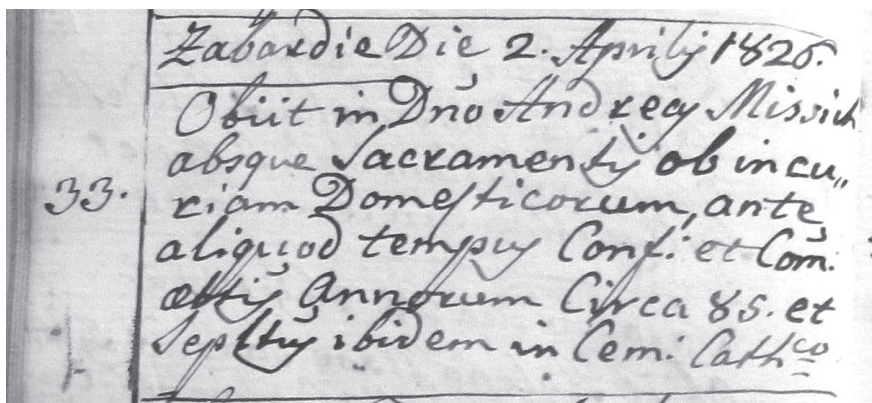 Zabardie Die 2. Aprilis 1826.
Obiit in Dño Andreas Missich
absque Sacramentis ob incu„
33. riam Domesticorum, ante
aliquod tempus Conf: et Com̃:
ætatis Annorum Circa 85. et
Sepltus ibidem in Cem: Cath͟c͟o